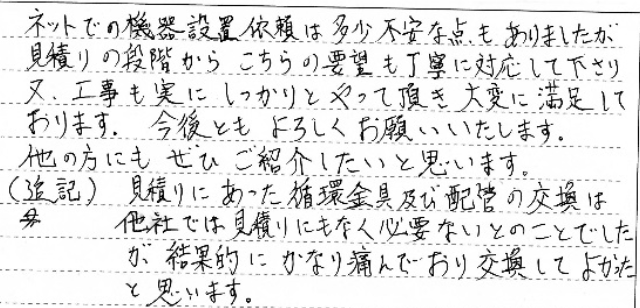 ネットでの機器設置依頼は多少不安な点もありましたが
見積りの段階からこちらの要望も丁寧に対応して下さり
又、工事も実にしっかりとやって頂き大変に満足して
おります。今後ともよろしくお願いいたします。
他の方にもぜひご紹介したいと思います。
(追記) 見積りにあった循環金具及び配管の交換は
他社では見積りにもなく必要ないとのことでした
が、結果的にかなり痛んでおり交換してよかった
と思います。